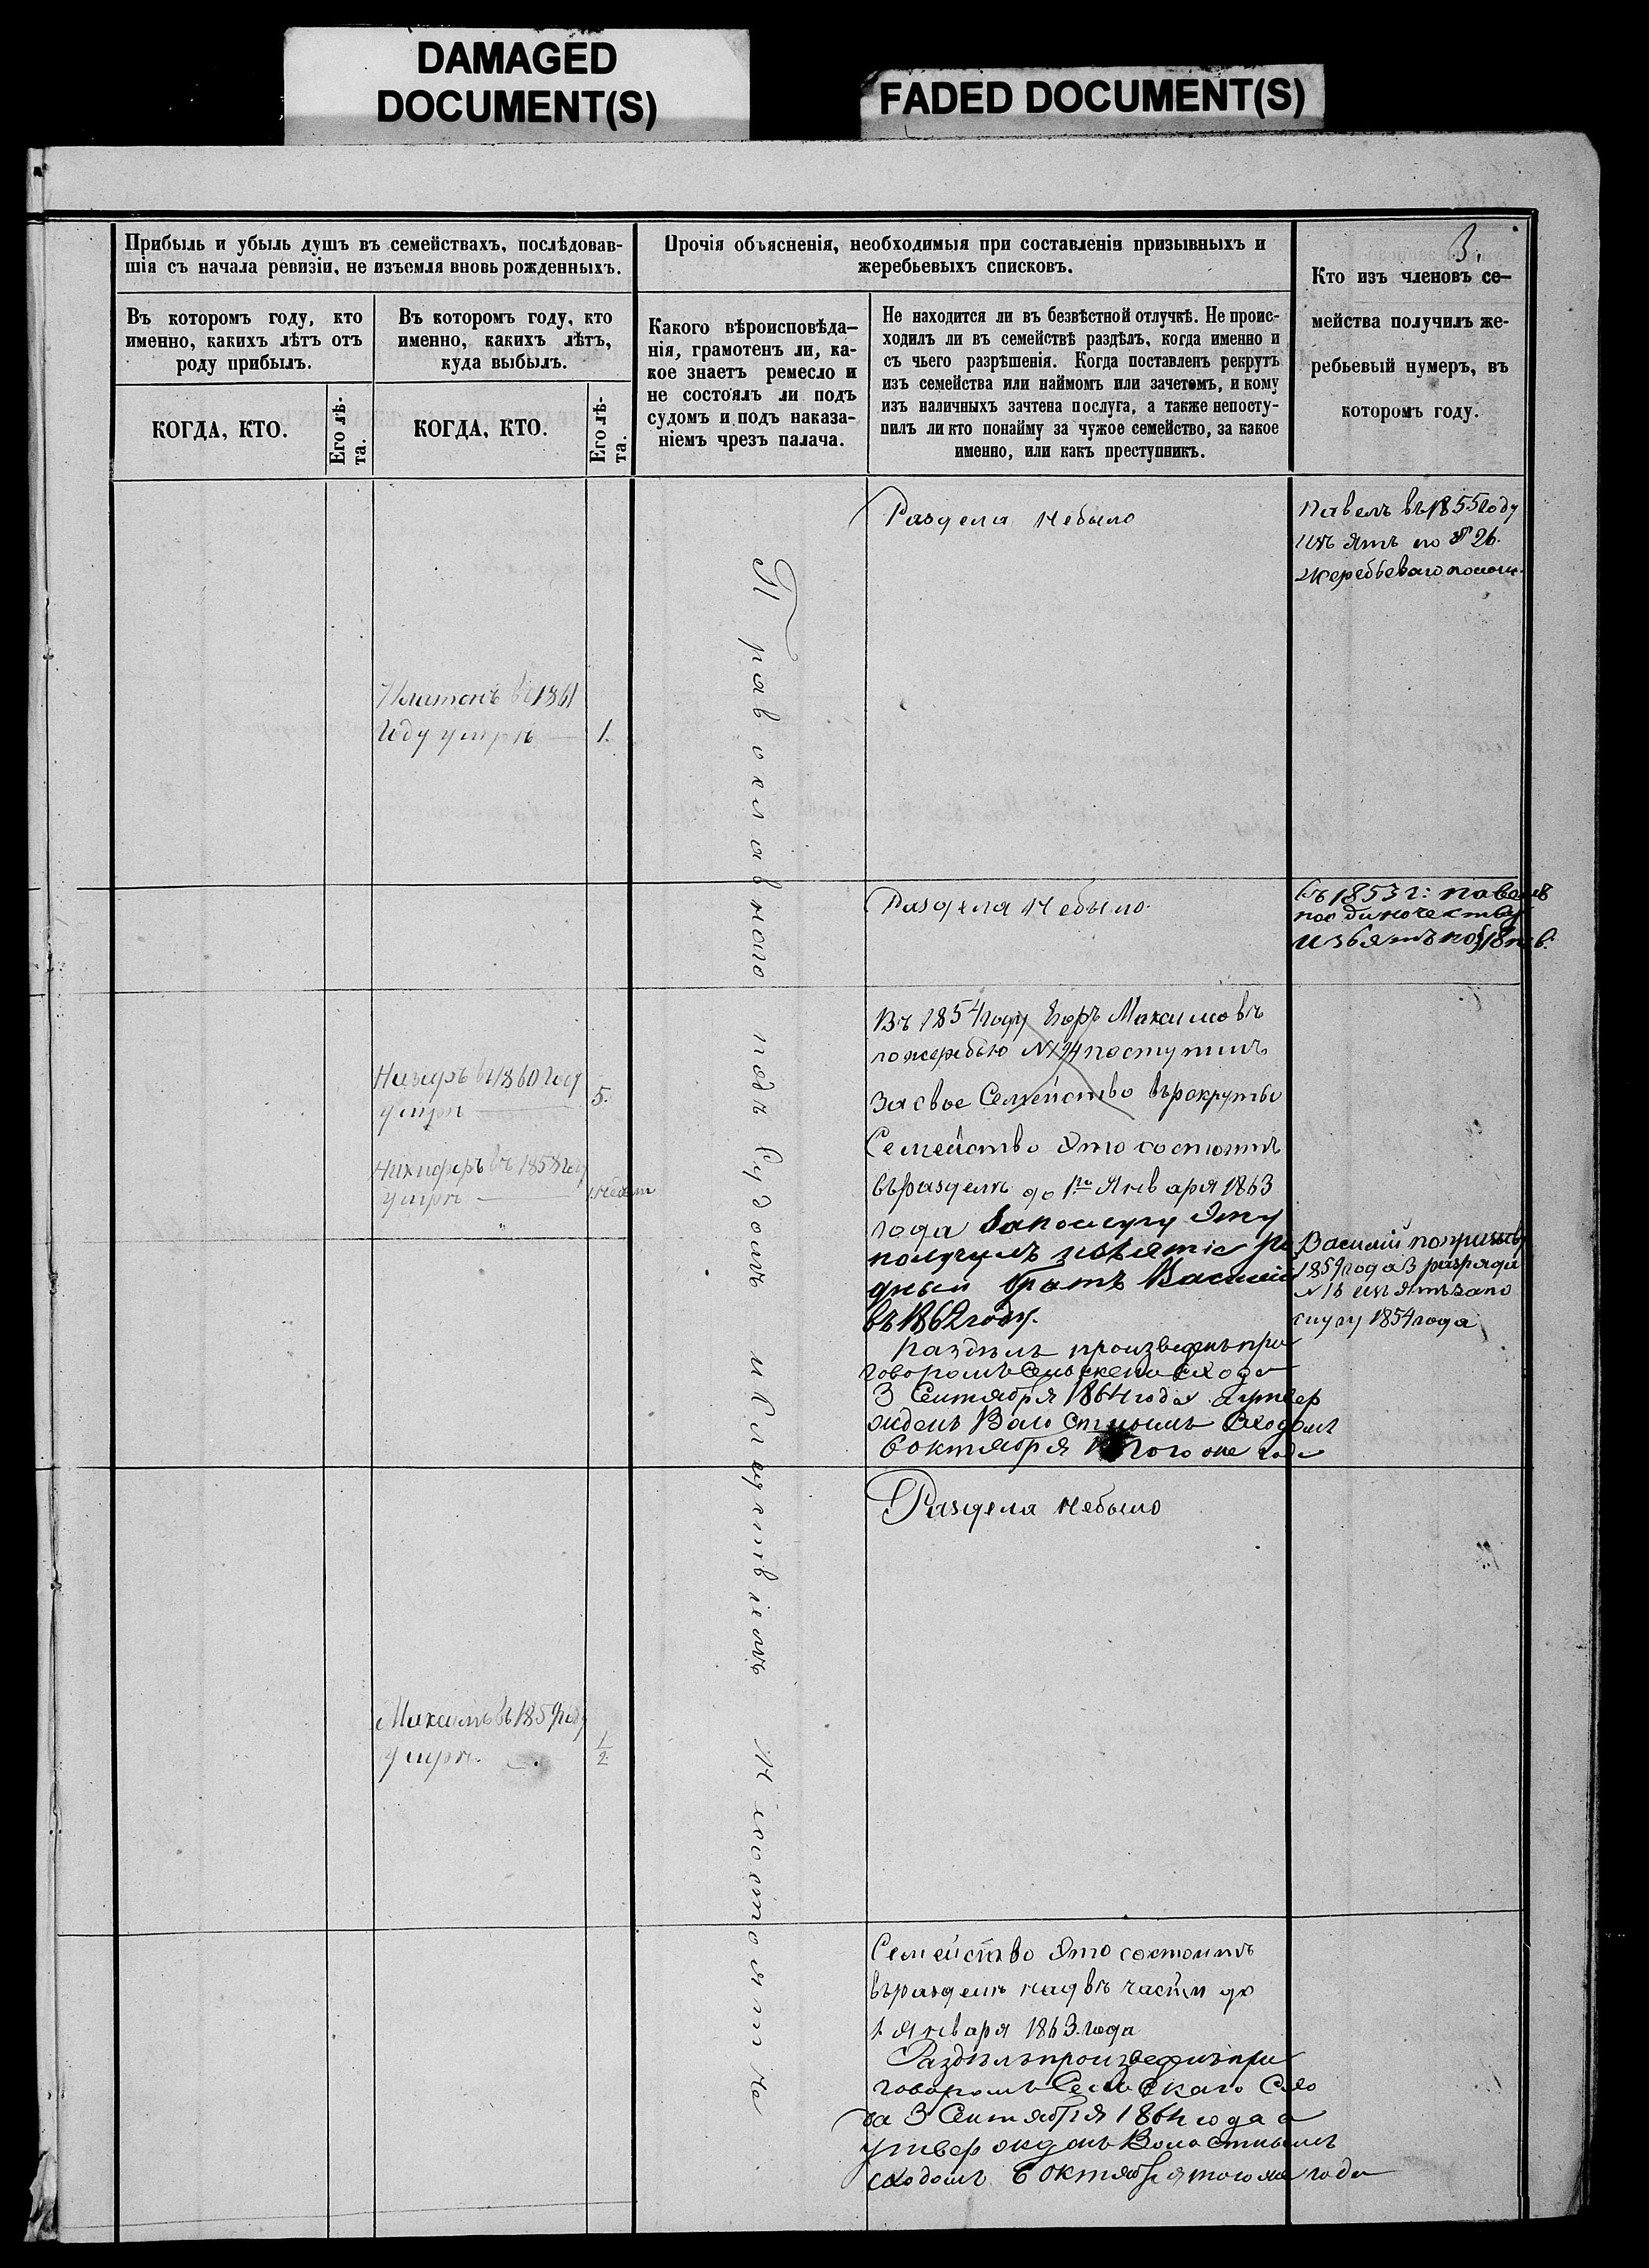 DAMAGED
DOCUMENT(S)
FADED DOCUMENT(S)
3.
Прибыль и убыль душъ въ семействахъ, послѣдовав-
шія съ начала ревизіи, не изъемля вновь рожденныхъ.
Прочія объясненія, необходимыя при составленіи призывныхъ и
жеребьевыхъ списковъ.
Кто изъ членовъ се-
мейства получилъ же-
ребьевый нумеръ, въ
которомъ году.
Въ которомъ году, кто
именно, какихъ лѣтъ отъ
роду прибылъ.
Въ которомъ году, кто
именно, какихъ лѣтъ,
куда выбылъ.
Какого вѣроисповѣда-
нія, грамотенъ ли, ка-
кое знаетъ ремесло и
не состоялъ ли подъ
судомъ и подъ наказа-
ніемъ чрезъ палача.
Не находится ли въ безвѣстной отлучкѣ. Не проис-
ходилъ ли въ семействѣ раздѣлъ, когда именно и
съ чьего разрѣшенія. Когда поставленъ рекрутъ
изъ семейства или наймомъ или зачетомъ, и кому
изъ наличныхъ зачтена послуга, а также непосту-
пилъ ли кто понайму за чужое семейство, за какое
именно, или какъ преступникъ.
КОГДА, КТО.
Его лѣ-
та.
КОГДА, КТО.
Его лѣ-
та.
Православнаго подъ Судомъ и Следствіемъ не
Раздела небыло
Павелъ въ 1855 году
изъятъ по № 26.
жеребьеваго
Платонъ въ 1861
году умръ 1.
Раздела небыло.
въ 1853 г: Павелъ
изъятъ по
Въ 1854 году Егоръ Максимовъ
по жеребью № 194 поступилъ
За свое Семейство въ рекруты
Семейство Это состоитъ
въ разделѣ до 1го Января 1863
года За послугу Эту
получилъ изъятіе ро
дный братъ Василій
въ 1862 году.
Раздѣлъ произведенъ при
говоромъ Сельскаго схода
3 Сентября 1864 года а утвер
жденъ Волостнымъ Сходомъ
6 октября того же года
Назаръ въ 1860 году
умръ 5.
Никифоръ въ 1858 году
умръ
Василій
1859 года 3 разряда
№ 18 изъятъ за по
слугу 1854 года
Раздела небыло
Максимъ въ 1859 году
умръ. 1/2
Семейство Это состоитъ
въ разделѣ на двѣ части до
1 Января 1863 года
Раздѣлъ произведенъ при
говоромъ Сельскаго Схо
да 3 Сентября 1864 года а
утвержденъ Волостнымъ
сходомъ 6 октября того же года